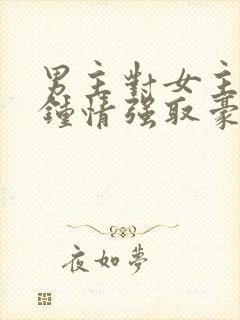 男主對女主
鍾情强取豪
夜如夢